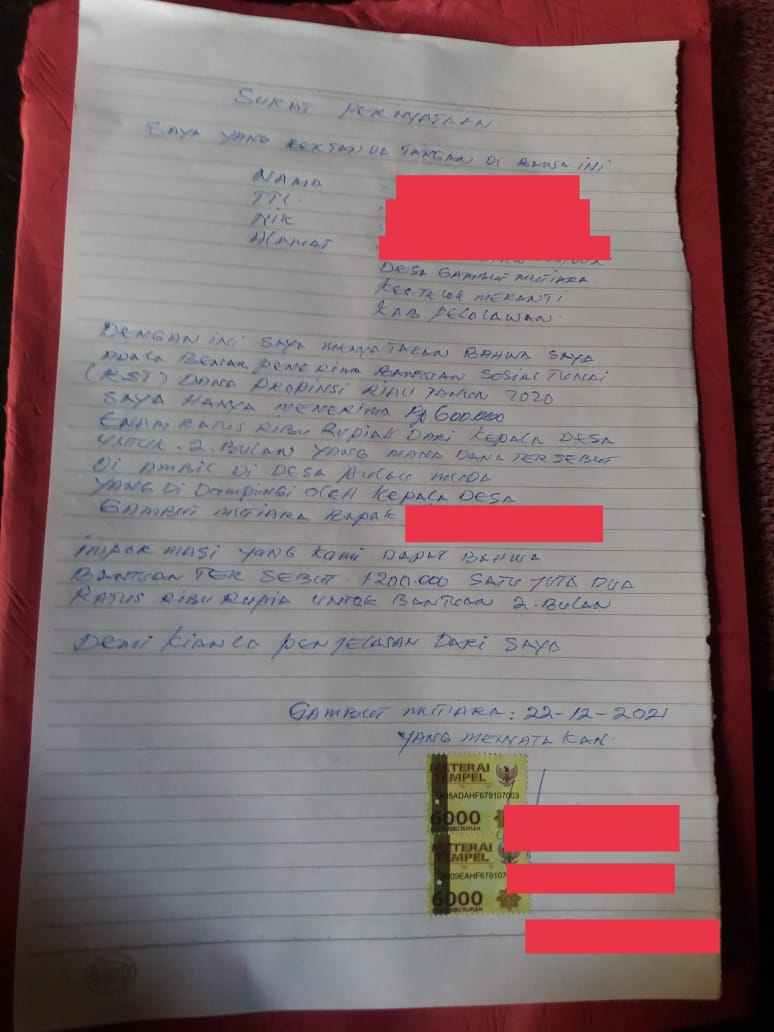 SURAT PERNYATAAN
SAYA YANG BERTANDA TANGAN DI BAWA INI
NAMA :
TTL. :
NIK :
ALAMAT :
DESA GAMBUT MUTIARA
KEC. TELUK MERANTI
KAB PELALAWAN.
DENGAN INI SAYA MENYATAKAN BAHWA SAYA
ADALA BENAR PENERIMA BANTUAN SOSIAL TUNAI
(BST) DANA PROPINSI RIAU TAHUN 2020
SAYA HANYA MENERIMA Rp 600.000
ENAM RATUS RIBU RUPIAH DARI KEPALA DESA
UNTUK. 2. BULAN YANG MANA DANA TERSEBUT
DI AMBIL DI DESA PULAU MUDA
YANG DI DAMPINGI OLEH KEPALA DESA
GAMBUT MUTIARA BAPAK
IMPORMASI YANG KAMI DAPAT BAHWA
BANTUAN TERSEBUT 1200.000 SATU JUTA DUA
RATUS RIBU RUPIA UNTUK BANTUAN 2. BULAN
DEMI KIANLA PENJELASAN DARI SAYA
GAMBUT MUTIARA : 22-12-2021
YANG MENYATAKAN.
METERAI
TEMPEL
95ADAHF679107003
6000
RIBU RUPIAH
METERAI
TEMPEL
09EAHF67910
6000
RIBU RUPIAH
SIDU